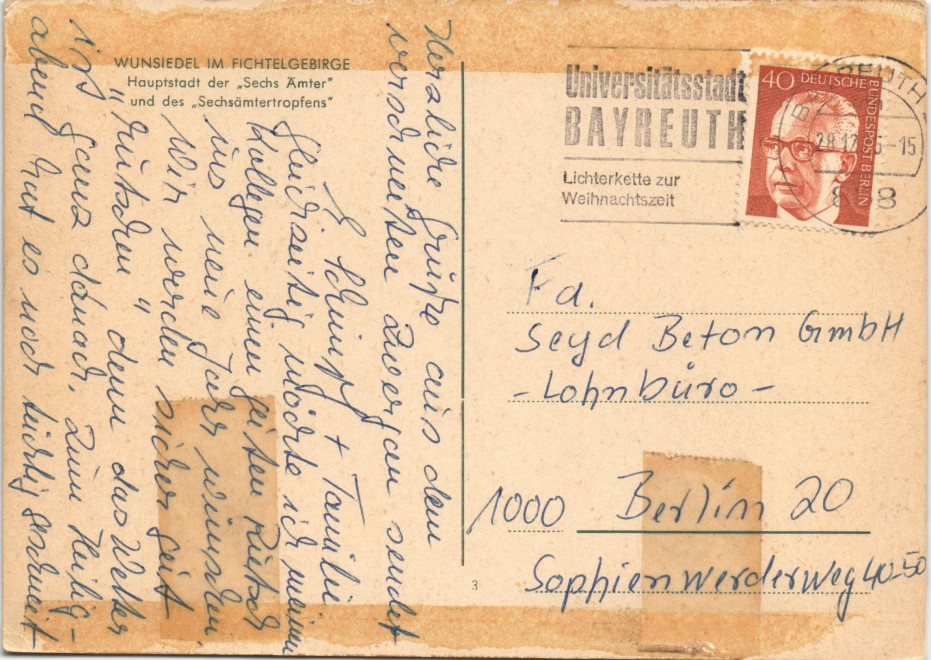 WUNSIEDEL IM FICHTELGEBIRGE
Hauptstadt der „Sechs Ämter"
und des „Sechsämtertropfens"
Universitätsstadt
BAYREUTH
Lichterkette zur
Weihnachtszeit
40 DEUTSCHE
BUNDESPOST BERLIN
28.12. -15
Herzliche Grüße aus dem
verschneiten Zwergau sendet
E Schimpf + Familie
Gleichzeitig möchte ich meinen
Kollegen einen guten Rutsch
ins neue Jahr wünschen.
Wir werden sicher gut
"rutschen" denn das Wetter
ist ganz danach. Zum Heilig-
abend hat es noch tüchtig geschneit
Fa.
Seyd Beton GmbH
- Lohnbüro -
1000 Berlin 20
Sophienwerderweg 40-50
3